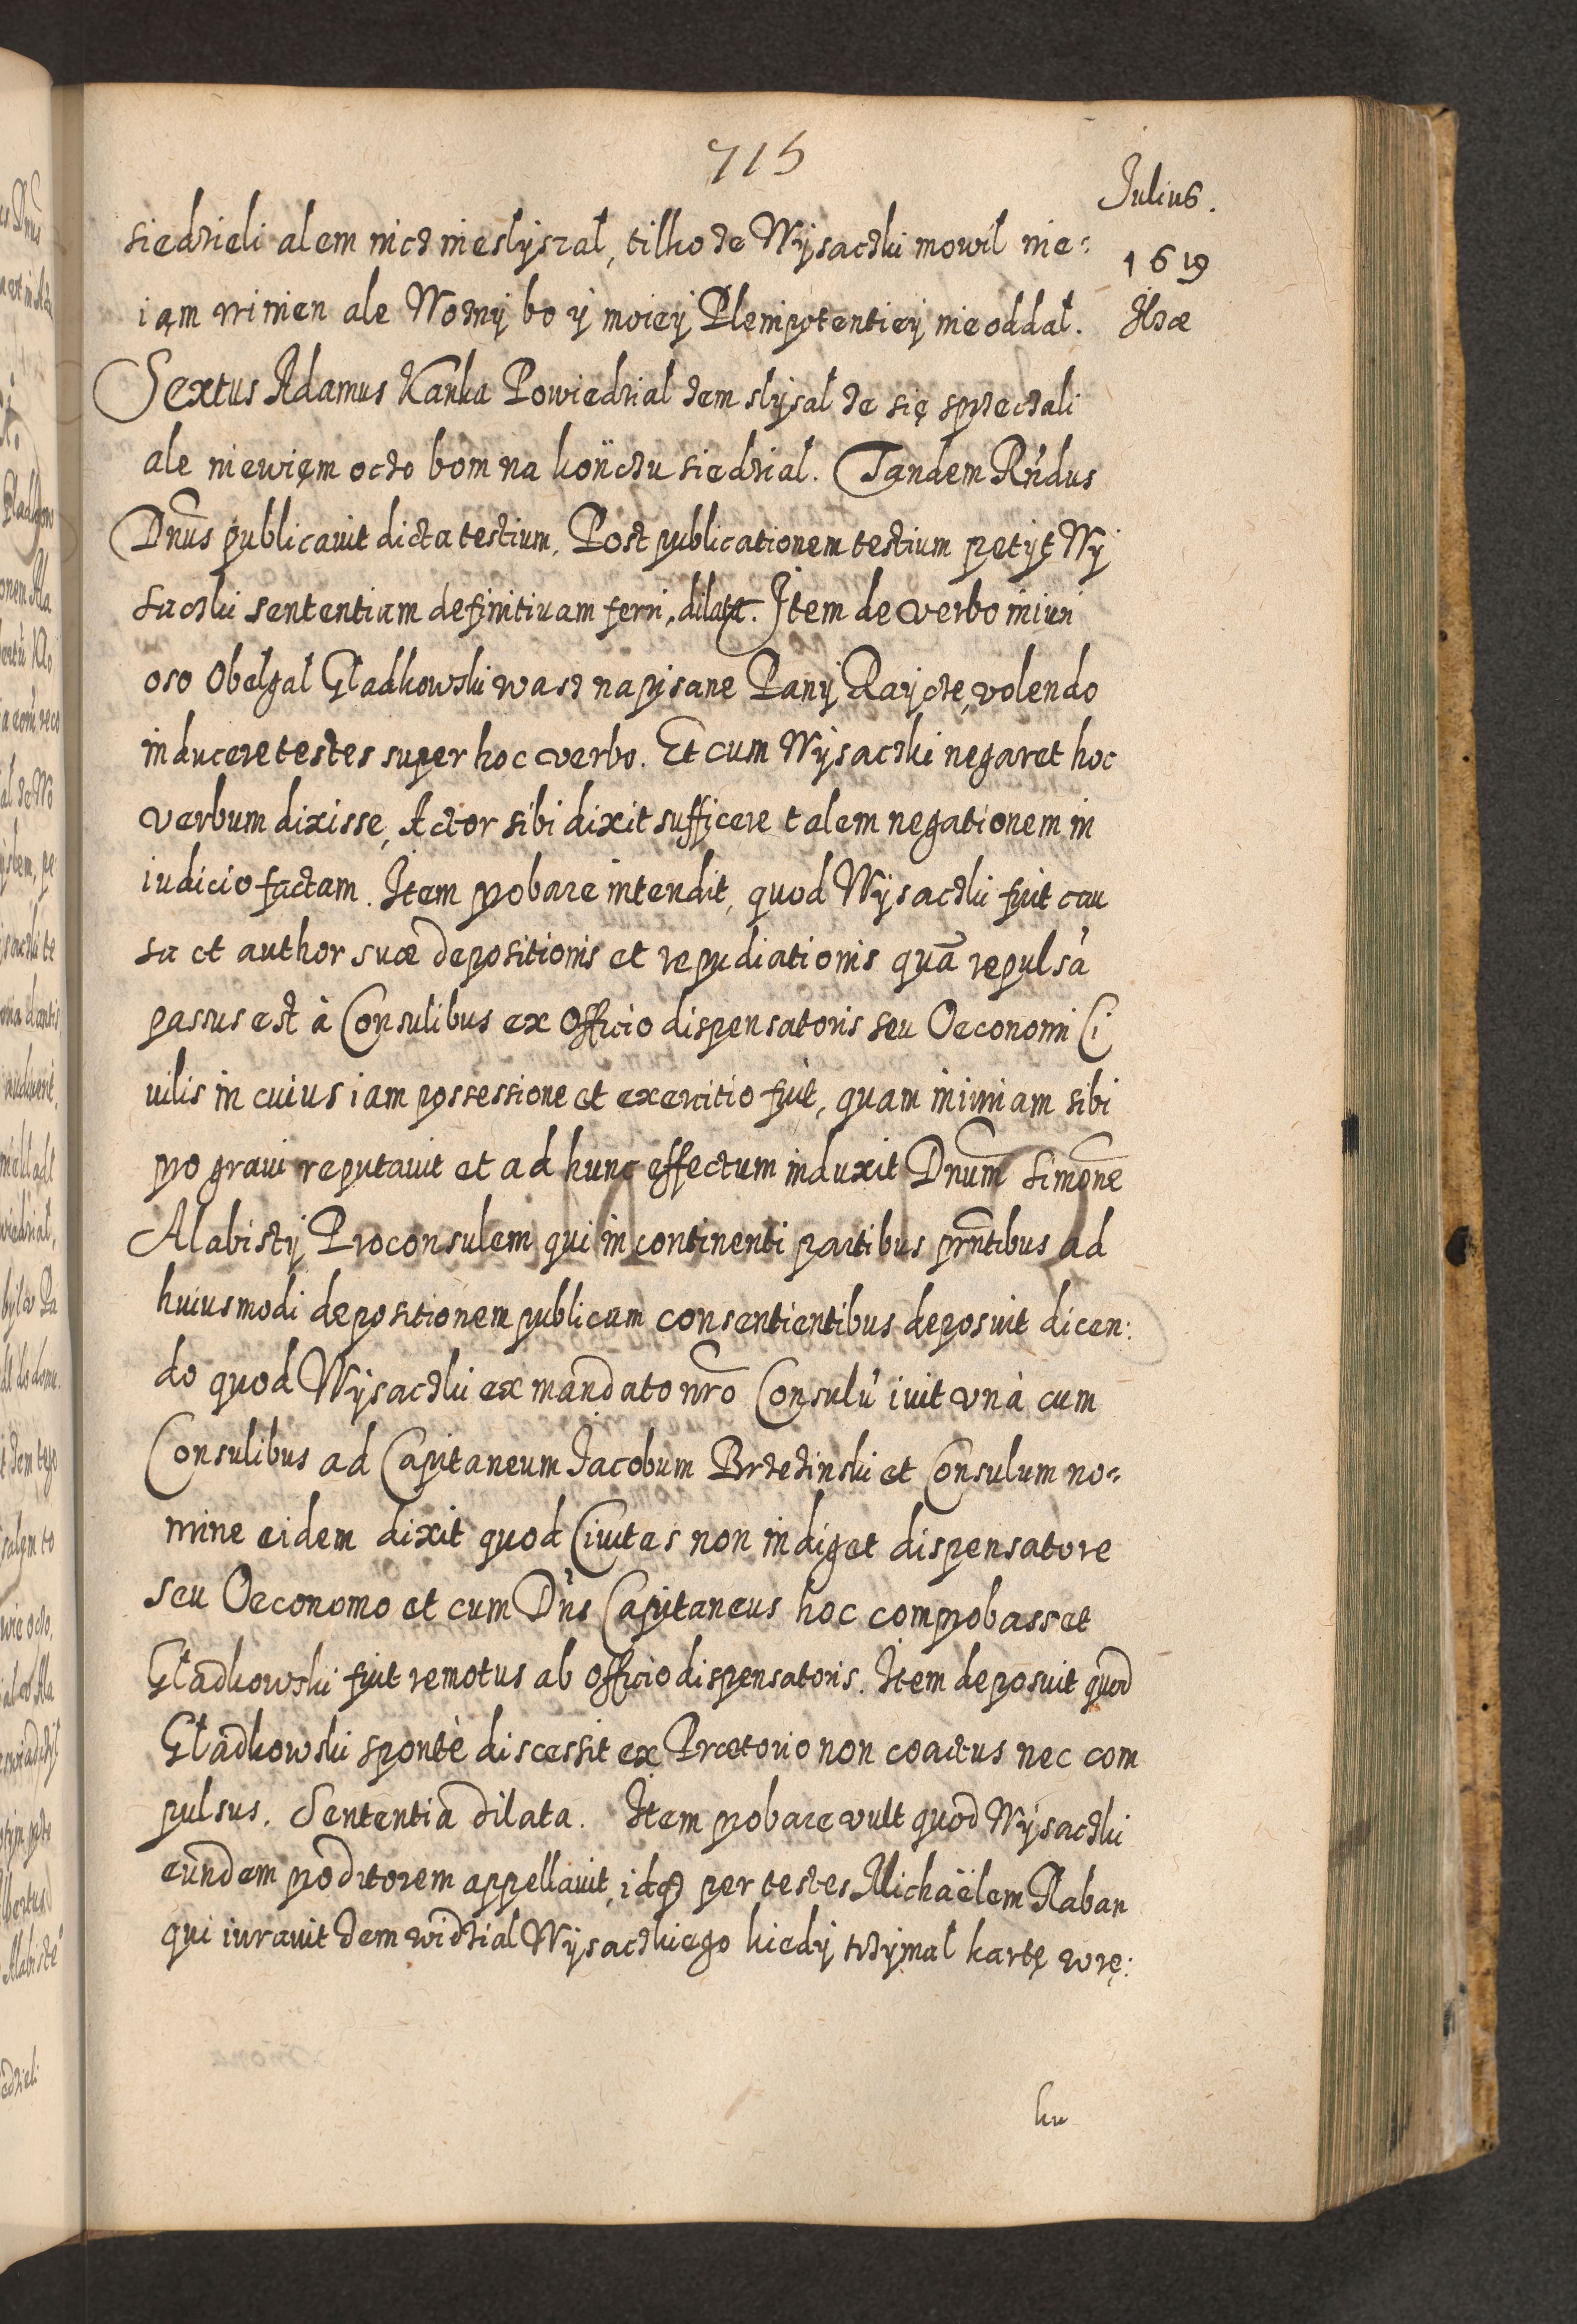 715
Julius.
1619
Ilżæ
siedzieli alem nicz niesłyszał, tilko że Wysaczki mowił nie-
iąm winien ale Wożny bo y moiey Plenipotentiey nieoddał.
Sextus Adamus Kańka Powiedzial żem słysał że się sprzeczali
ale niewięm oczo bom na kończu siedział. Tandem Rńdus
Dnūs publicauit dicta testium. Post publicationem testium petyt Wy
saczki sententiam definitiuam ferri, dilata. Item de verbo iniuri
oso Obelgał Gładkowski wasz napisane Pany Rayczę, volendo
inducere testes super hoc verbo. Et cum Wysaczki negaret hoc
verbum dixisse, Actor sibi dixit sufficere talem negationem in
iudicio factam. Item probare intendit, quod Wysaczki fuit cau
sa et author suæ depositionis et repudiationis quā repulsā
passus est à Consulibus ex Officio dispensatoris seu Oeconomi Ci
uilis in cuius iam possessione et exercitio fuit, quam iniuriam sibi
pro graui reputauit et ad hunc effectum induxit Dnum̄ Simonē
Alabisty Proconsulem qui in continenti partibus prn̄tibus ad
huiusmodi depositionem publicam consentientibus deposuit dicen:
do quod Wysaczki ex mandato nrō Consulū iuit vnà cum
Consulibus ad Capitaneum Jacobum Brzeżinski et Consulum no-
mine eidem dixit quod Ciuitas non indiget dispensatore
seu Oeconomo et cum Dńs Capitaneus hoc comprobasset
Gładkowski fuit remotus ab officio dispensatoris. Item deposuit quod
Gładkowski spontè discessit ex Prætorio non coactus nec com
pulsus. Sententia dilata. Item probare vult quod Wysaczki
eundem proditorem appellauit, idq3 per testes Michaëlem Raban
qui iurauit żem widział Wysaczkiego kiedy trzymał kartę wrę:
ku